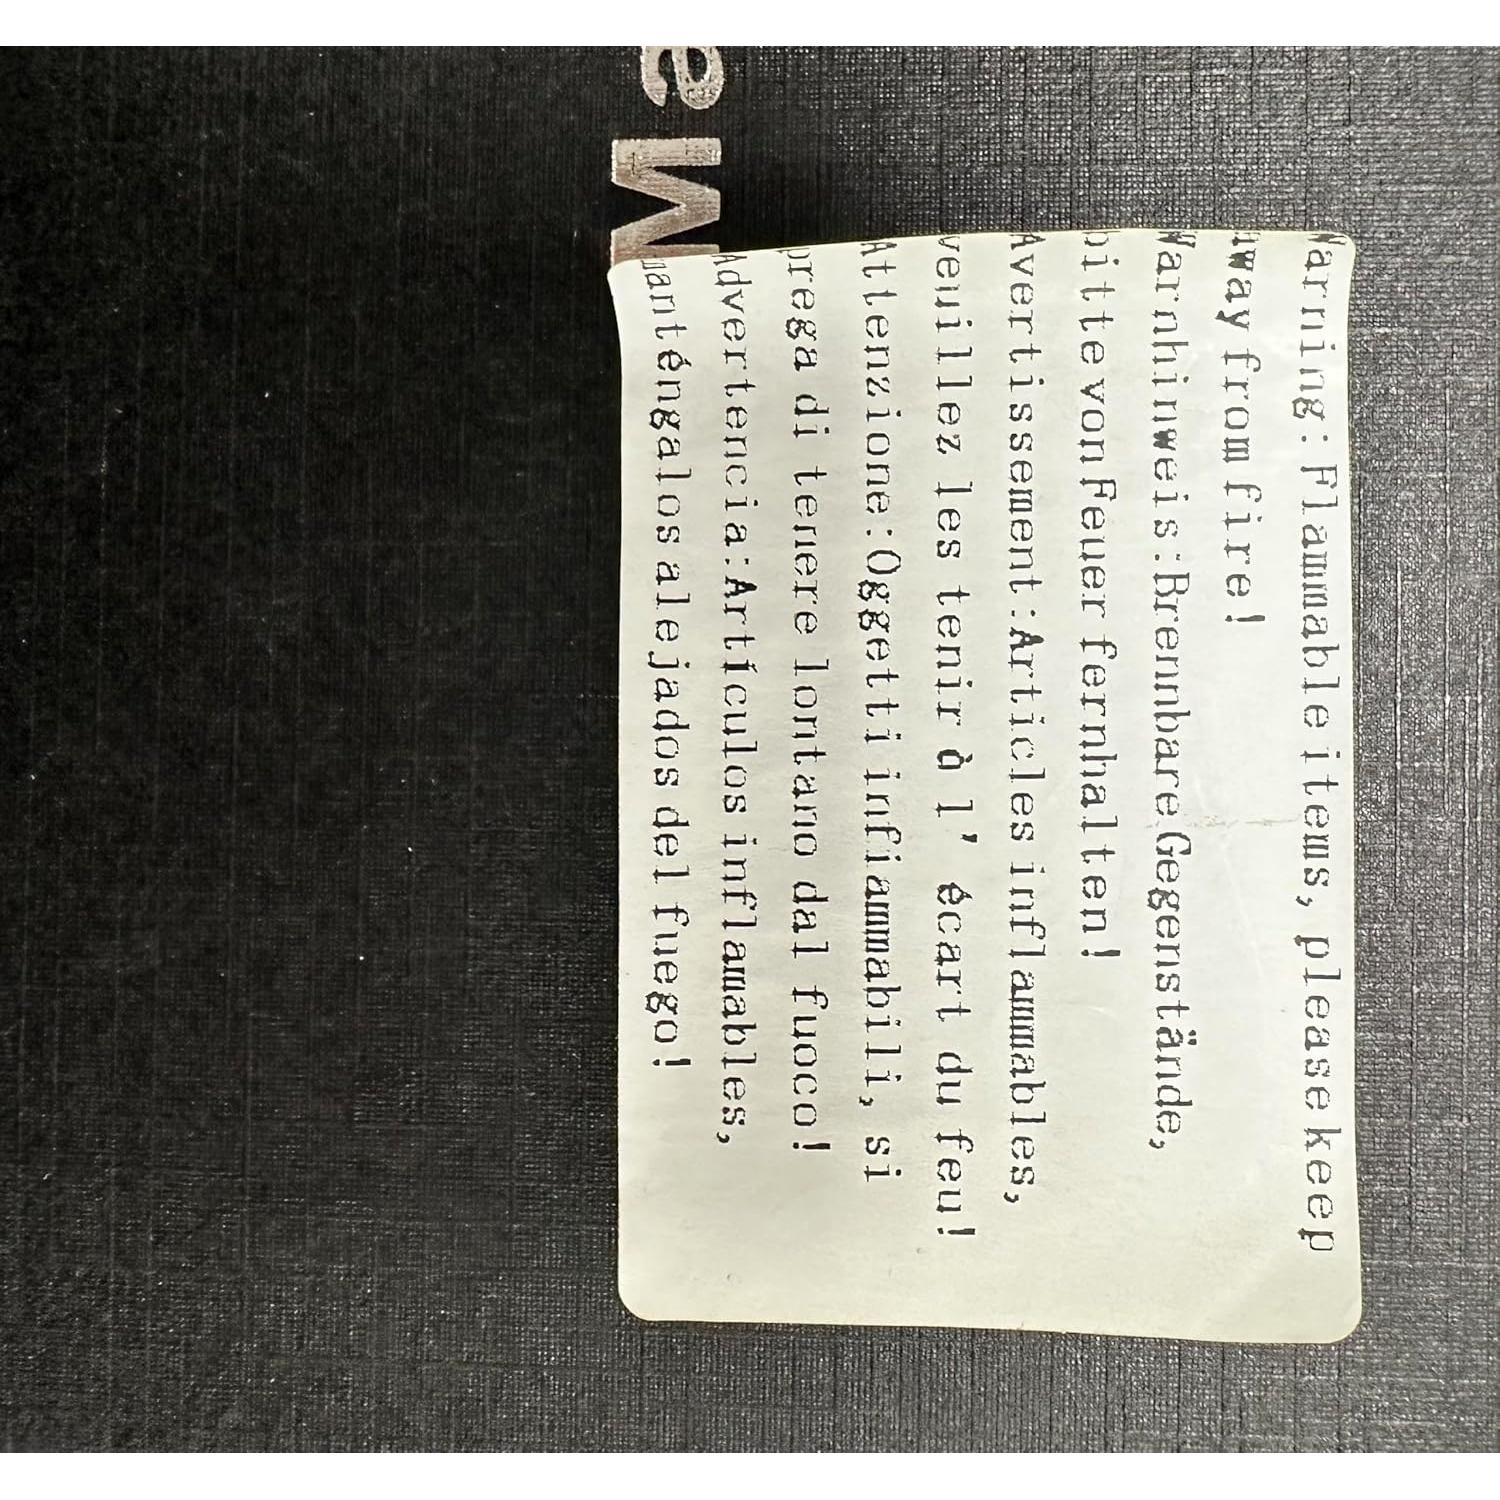 Ma
Warning: Flammable items, please keep
away from fire!
Warnhinweis:Brennbare Gegenstände,
bitte von Feuer fernhalten!
Avertissement:Articles inflammables,
veuillez les tenir à l' écart du feu!
Attenzione:Oggetti infiammabili, si
prega di tenere lontano dal fuoco!
Advertencia:Artículos inflamables,
manténgalos alejados del fuego!